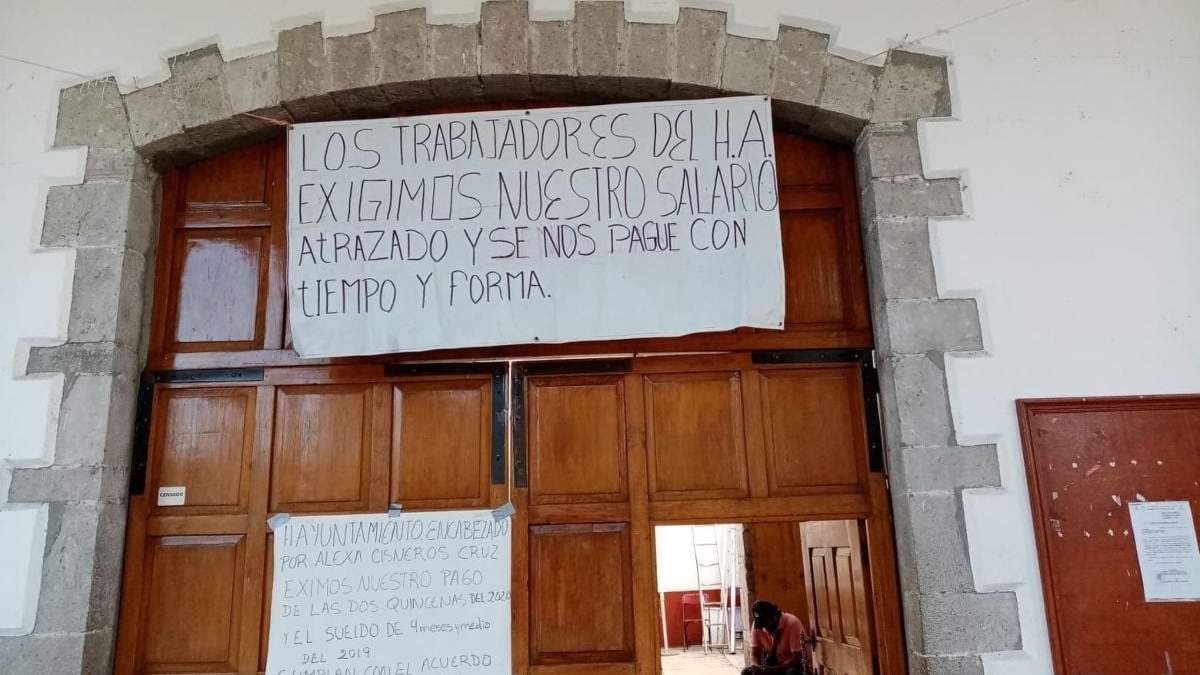 LOS TRABAJADORES DEL H.A.
EXIGIMOS NUESTRO SALARIO
AtRAZADO Y SE NOS PAGUE CON
tIEMPO Y FORMA.
CENSADO
H AYUNTAMIENTO, ENCABEZADO
POR ALEXA CISNEROS CRUZ
EXIMOS NUESTRO PAGO
DE LAS DOS QUINCENAS DEL 2020
Y EL SUELDO DE 4 meses y medio
DEL 2019.
CUMPLAN CON EL ACUERDO